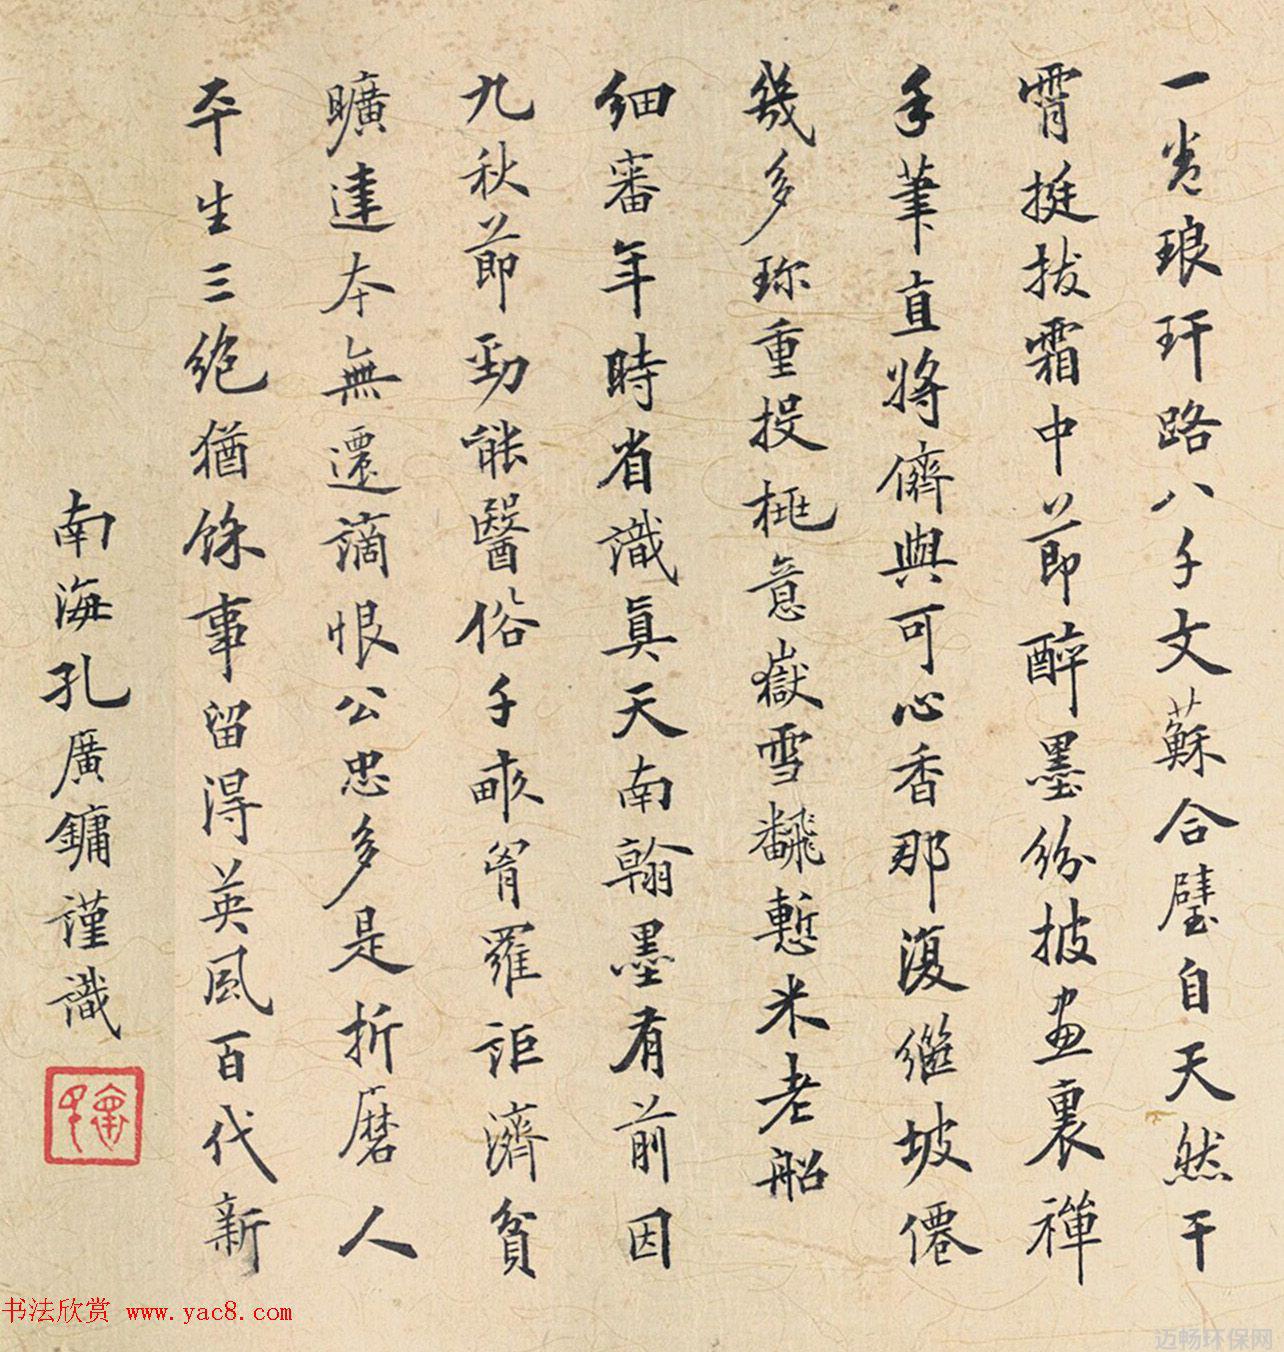 一卷琅玕路八千文蘇合璧自天然干
霄挺拔霜中節醉墨紛披畫裏禪
手筆直將儕與可心香那復繼坡僊
幾多珍重投桃意嶽雪飜慙米老船
細審年時省識眞天南翰墨有前因
九秋節勁能醫俗千畝胷羅詎濟貧
曠達本無遷謫恨公忠多是折磨人
平生三絶猶餘事留得英風百代新
南海孔廣鏞謹識
书法欣赏 www.yac8.com
迈畅环保网